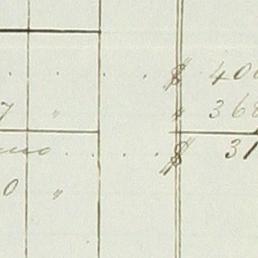 . . . . $ 400
7 " " 368
. . . . $ 31
0 "